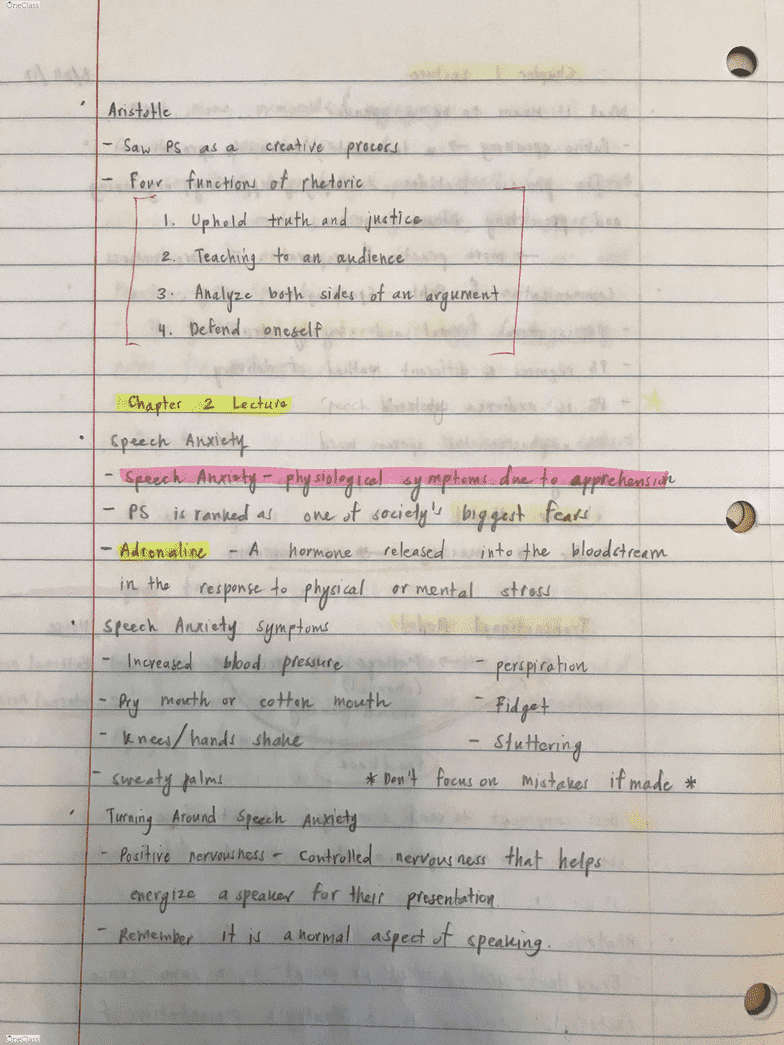 OneClass
• Aristotle
- Saw PS as a creative process
- Four functions of rhetoric
1. Uphold truth and justice
2. Teaching to an audience
3. Analyze both sides of an argument
4. Defend oneself
Chapter 2 Lecture
• Speech Anxiety
- Speech Anxiety - physiological symptoms due to apprehension
- PS is ranked as one of society's biggest fears
- Adrenaline - A hormone released into the bloodstream
in the response to physical or mental stress
• Speech Anxiety symptoms
- Increased blood pressure - perspiration
- Dry mouth or cotton mouth - Fidget
- Knees/hands shake - Stuttering
- sweaty palms * Don't focus on mistakes if made *
• Turning Around Speech Anxiety
- Positive nervousness - controlled nervousness that helps
energize a speaker for their presentation
- Remember it is a normal aspect of speaking.
OneClass